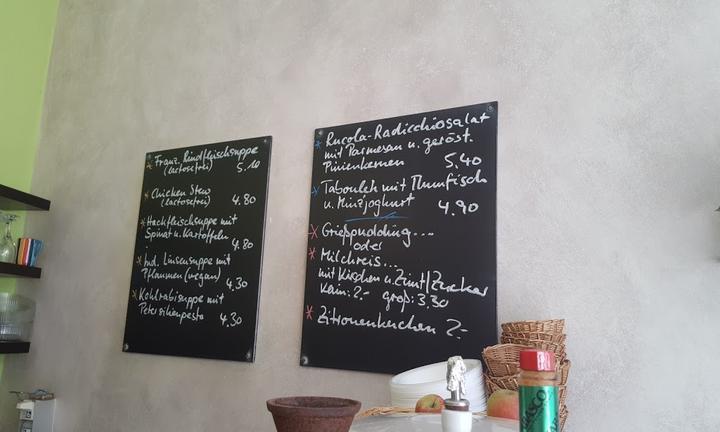 Franz. Rindfleischsuppe
(lactosefrei) 5.10
Chicken Stew
(lactosefrei) 4.80
Hackfleischsuppe mit
Spinat u. Kartoffeln
4.80
Ind. Linsensuppe mit
Pflaumen (vegan) 4.30
Kohlrabisuppe mit
Petersilienpesto 4.30
Rucola-Radicchiosalat
mit Parmesan u. geröst.
Pinienkernen 5.40
Tabouleh mit Thunfisch
u. Minzjoghurt 4.90
Grießpudding....
oder
Milchreis...
mit Kirschen u. Zimt/Zucker
klein: 2.- groß: 3.30
Zitronenkuchen 2.-